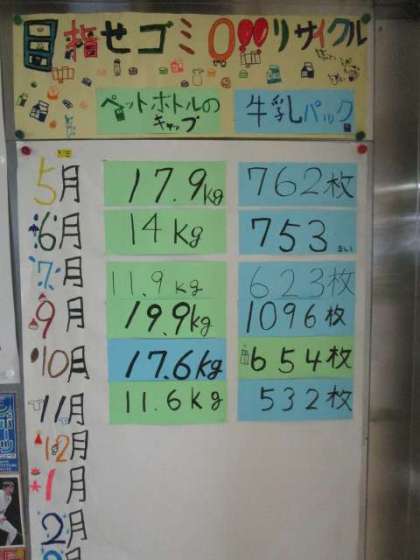 目指せゴミ0!!!リサイクル
ペットボトルの
キャップ
牛乳パック
5月 17.9kg 762枚
6月 14kg 753まい
7月 11.9kg 623枚
9月 19.9kg 1096枚
10月 17.6kg 654枚
11月 11.6kg 532枚
12月
1月
2月